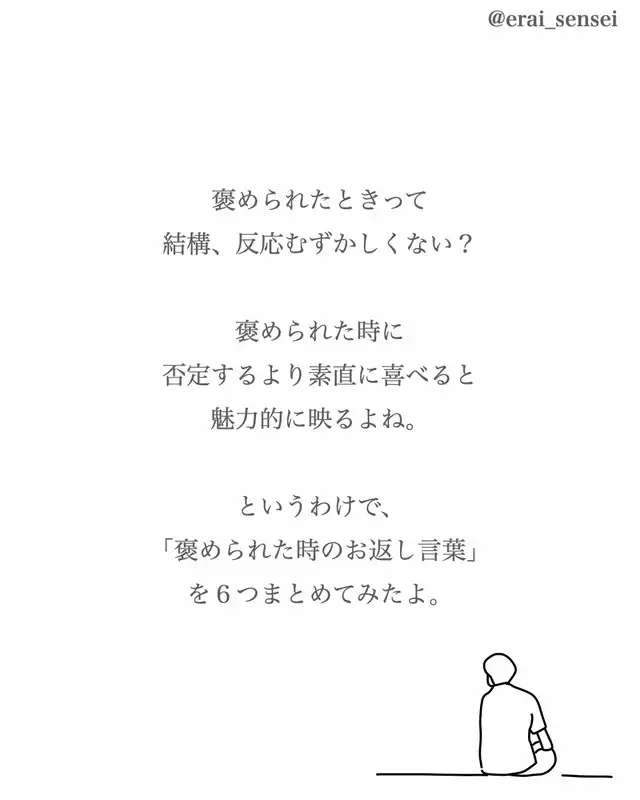 @erai_sensei
褒められたときって
結構、反応むずかしくない？
褒められた時に
否定するより素直に喜べると
魅力的に映るよね。
というわけで、
「褒められた時のお返し言葉」
を６つまとめてみたよ。